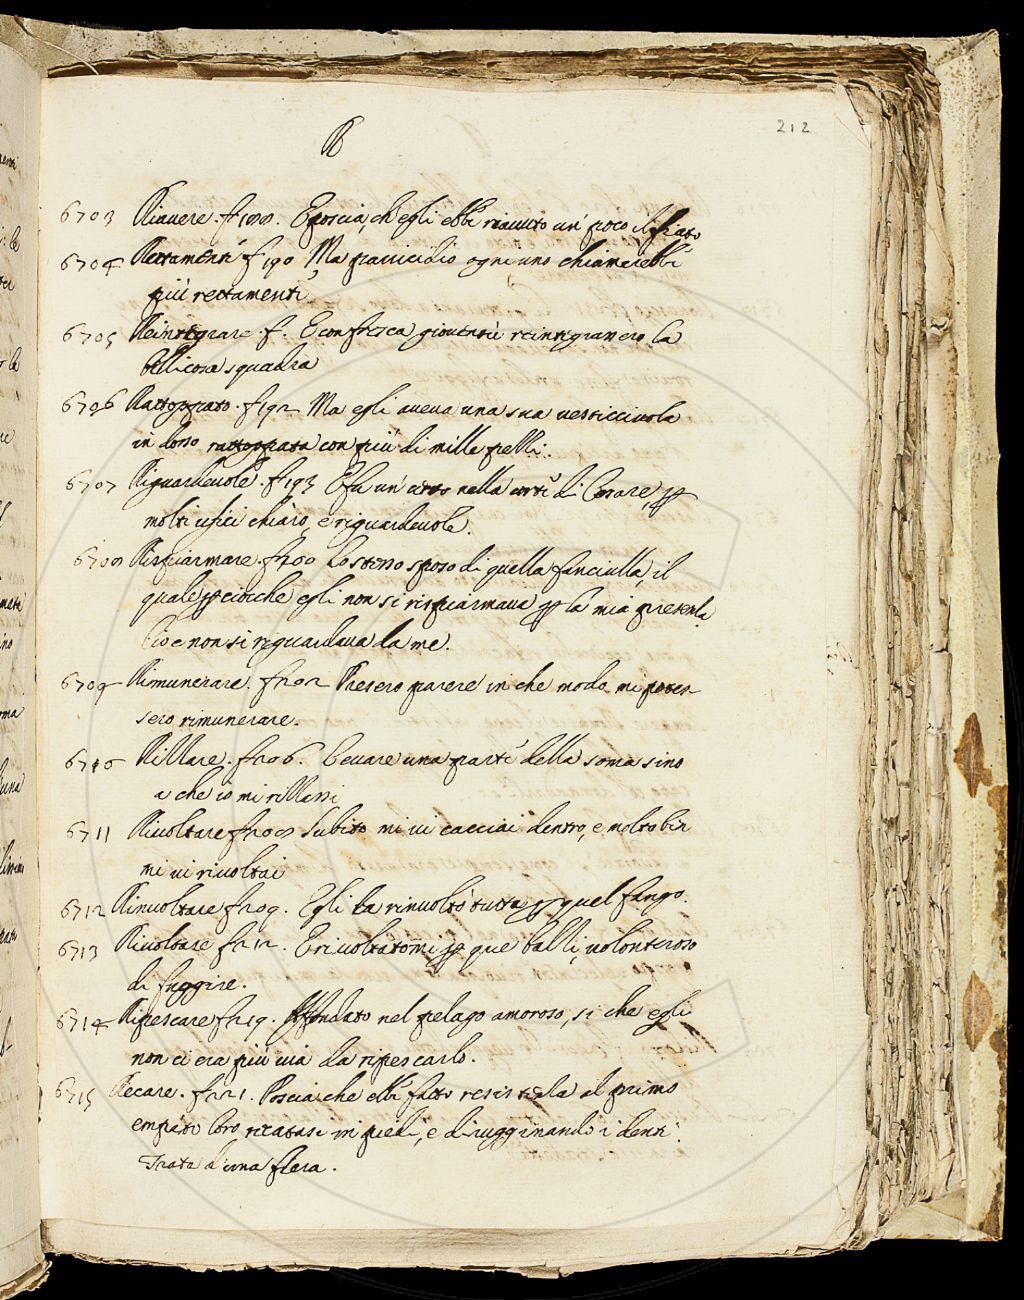 212
R
6703 Riavere. f. 188. E poscia, ch'egli ebbe riavuto un poco il fiato
6704 Rettamente f 190 Ma parricidio ogni uno chiamerebbe
più rettamente
6705 Reintegrare. f. E con fresca gioventù reintegrarero la
bellicosa squadra
6706 Rattoppato. f 192 Ma egli aveva una sua vesticciuola
in dosso rattoppata con più di mille pelli.
6707 Riguardevole. f 193 E fu un' nella corte di Cesare, p
molti ufici chiaro, e riguardevole.
6708 Risparmare. f 200 Lo stesso sposo di quella fanciulla, il
quale p cioche egli non si risparmava p la mia presenla
cioe non si riguardava da me.
6709 Rimunerare. f 202 Presero parere in che modo mi potes
sero rimunerare.
6710 Rillare. f 206. Levare una parte della soma sino
a che io mi rillassi
6711 Rivoltare f 208 Subito mi vi cacciai dentro, e molto ben
mi vi rivoltai
6712 Rinvoltare f 209. Egli la rinvoltò tutta p quel fango.
6713 Rivoltare f 212. E rivoltatomi p que balli, volonteroso
di fuggire.
6714 Ripescare f 219. Affondato nel pelago amoroso, si che egli
non ci era più via da ripescarlo.
6715 Recare. f 221. Poscia che ebbe fatto resistenla al primo
empito loro recatasi in piedi, e diruggginando i denti.
Trata d'una fiera.